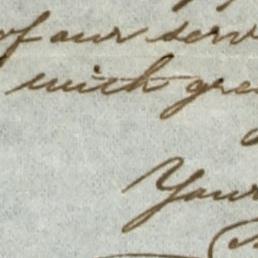 of our serv
with gre
Your